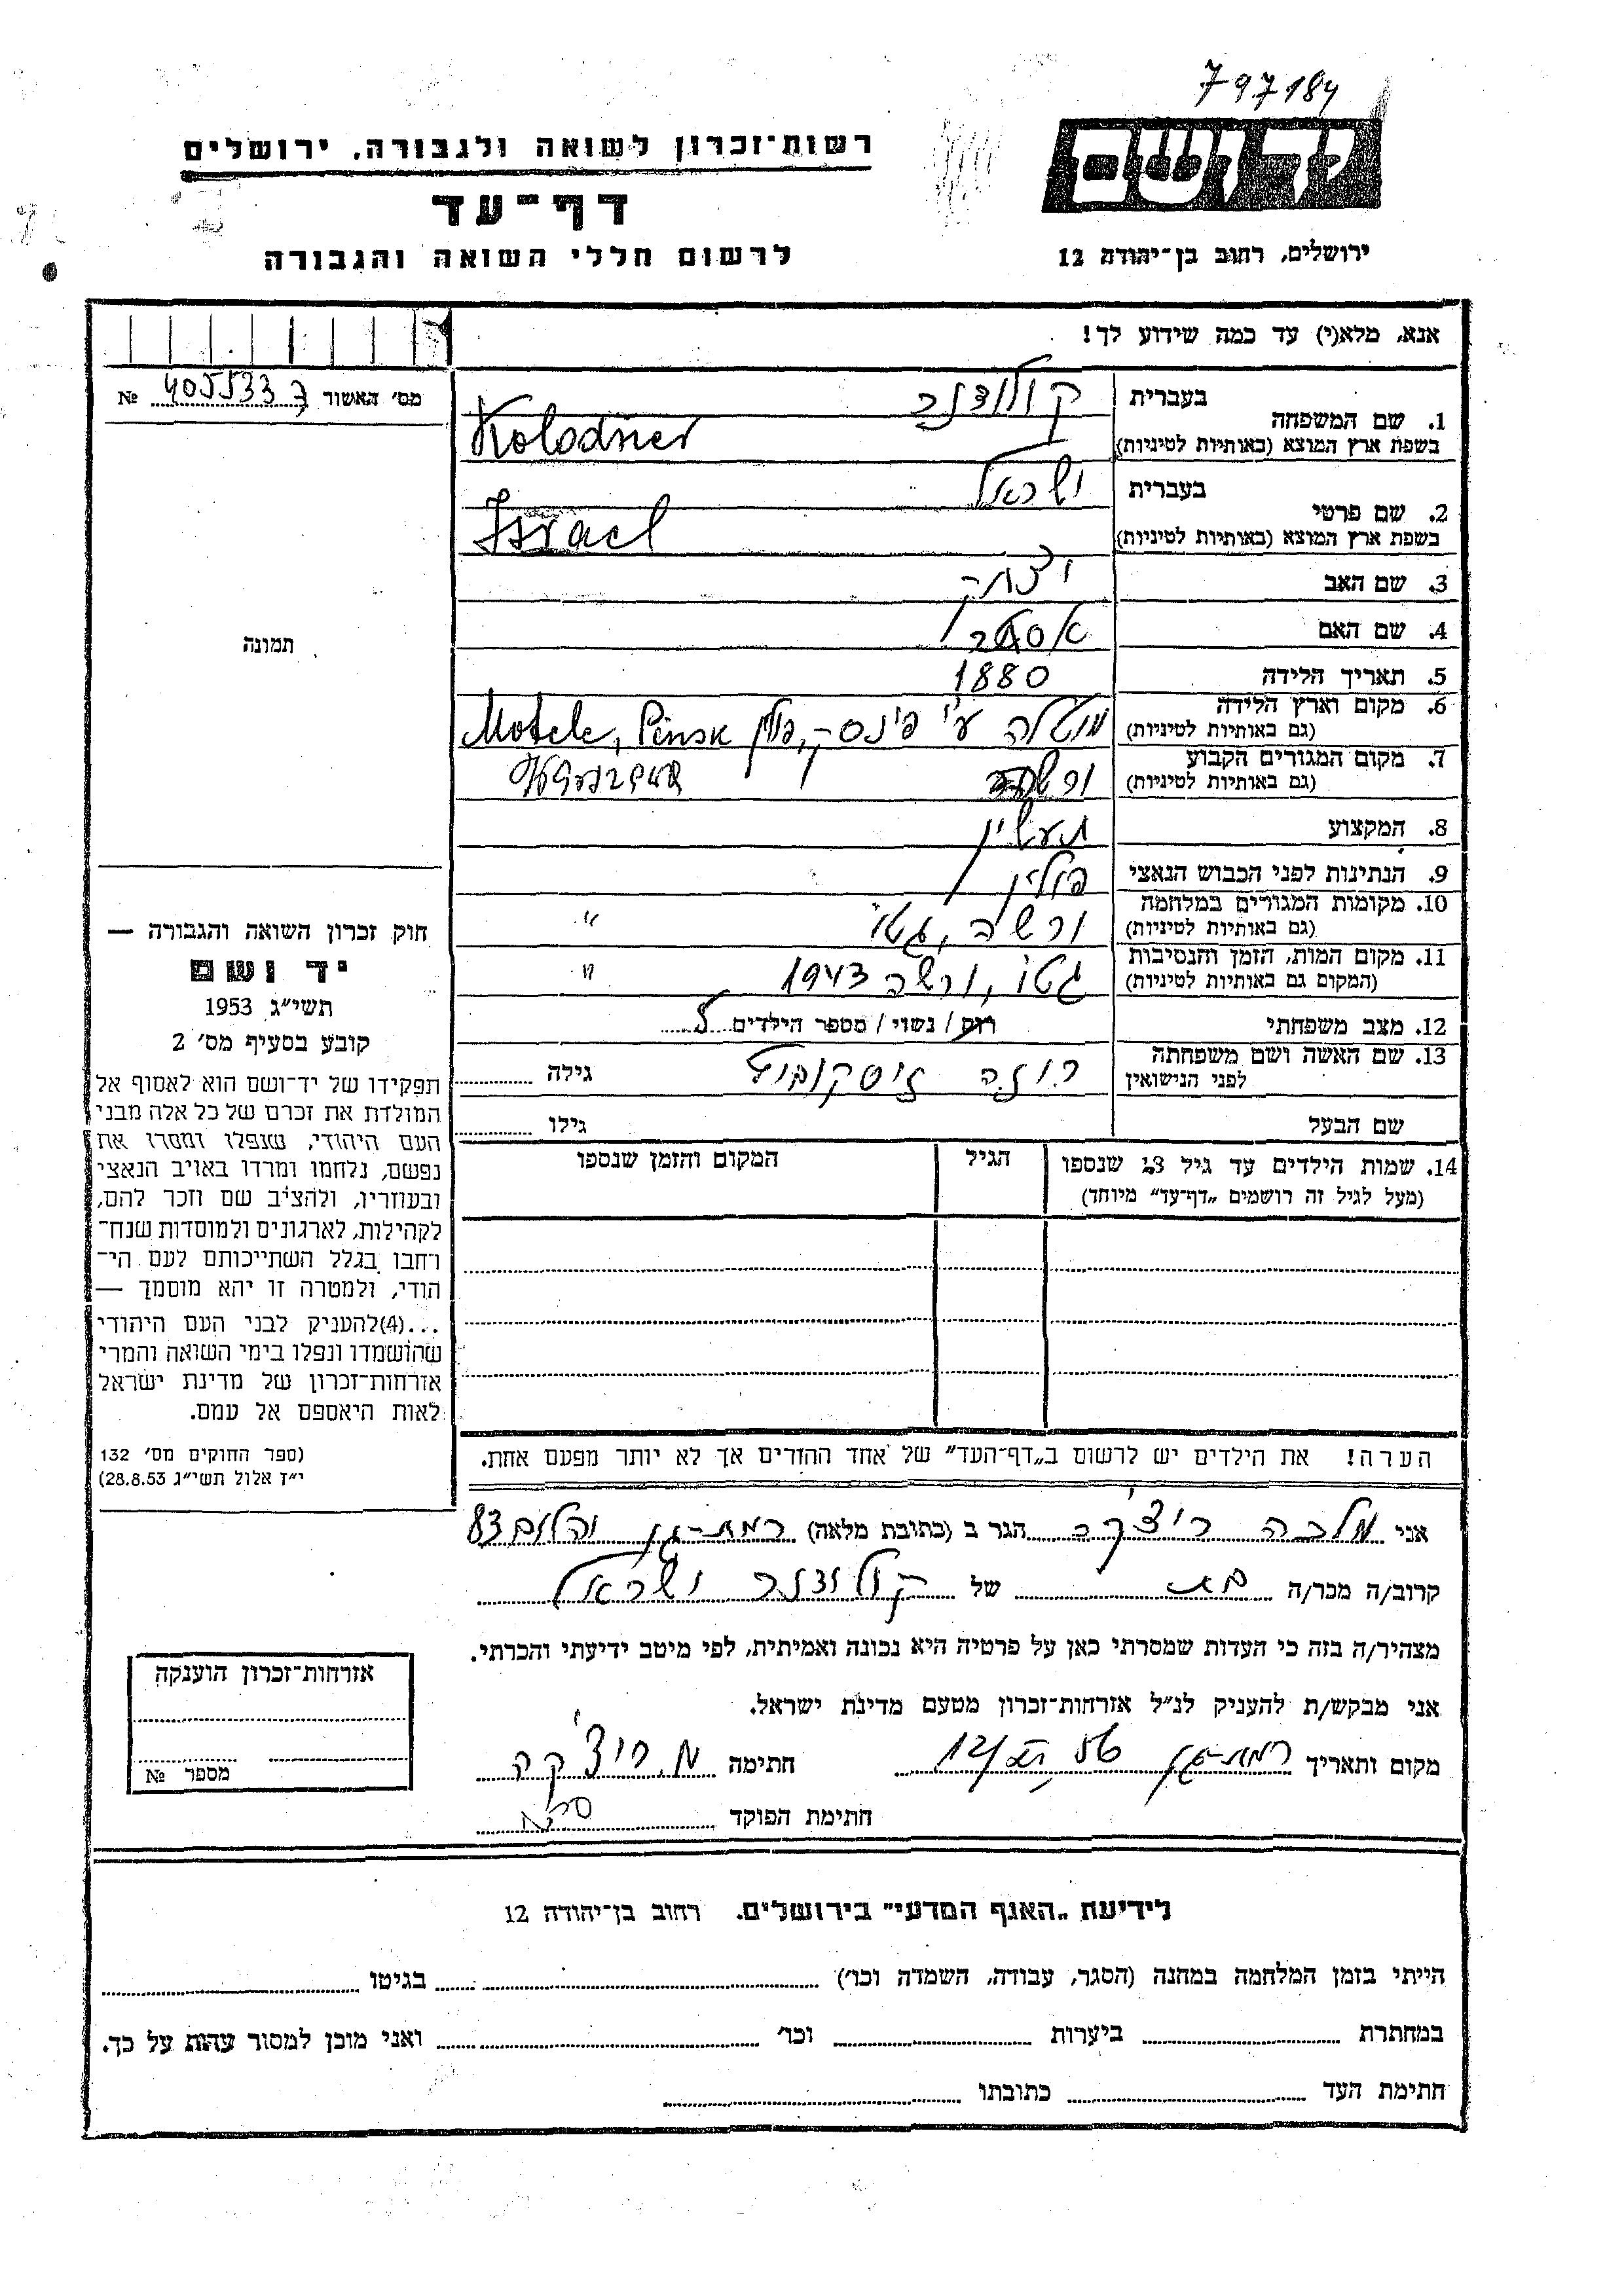 797184
ידושם
רשות־זכרון לשואה ולגבורה, ירושלים
דף־עד
לרשום חללי השואה והגבורה
ירושלים, רחוב בן־יהודה 12
אנא, מלא(י) עד כמה שידוע לך!
מס׳ האשור 4055337 №
1. שם המשפחה בעברית קולודנר
בשפת ארץ המוצא (באותיות לטיניות) Kolodner
2. שם פרטי בעברית ישראל
בשפת ארץ המוצא (באותיות לטיניות) Israel
3. שם האב יצחק
4. שם האם אסתר
תמונה
5. תאריך הלידה 1880
6. מקום וארץ הלידה (גם באותיות לטיניות) מוטלה ע״י פינסק, פולין Motele, Pinsk
7. מקום המגורים הקבוע (גם באותיות לטיניות) ורשה Warszawa
8. המקצוע תעשין
9. הנתינות לפני הכבוש הנאצי פולין
10. מקומות המגורים במלחמה (גם באותיות לטיניות) ורשה, גטו "
11. מקום המות, הזמן והנסיבות (המקום גם באותיות לטיניות) גטו, ורשה 1943 "
12. מצב משפחתי רוק / נשוי / מספר הילדים
13. שם האשה ושם משפחתה לפני הנישואין רוזה גילה
שם הבעל גילו
14. שמות הילדים עד גיל 13 שנספו הגיל המקום והזמן שנספו
(מעל לגיל זה רושמים „דף־עד״ מיוחד)
חוק זכרון השואה והגבורה —
יד ושם
תשי״ג 1953
קובע בסעיף מס׳ 2
תפקידו של יד־ושם הוא לאסוף אל
המולדת את זכרם של כל אלה מבני
העם היהודי, שנפלו ומסרו את
נפשם, נלחמו ומרדו באויב הנאצי
ובעוזריו, ולהציב שם וזכר להם,
לקהילות, לארגונים ולמוסדות שנח־
רחבו בגלל השתייכותם לעם הי־
הודי, ולמטרה זו יהא מוסמך —
...(4)להעניק לבני העם היהודי
שהושמדו ונפלו בימי השואה והמרי
אזרחות־זכרון של מדינת ישראל
לאות היאספם אל עמם.
(ספר החוקים מס׳ 132
י״ז אלול תשי״ג 28.8.53)
הערה! את הילדים יש לרשום ב„דף־העד״ של אחד ההורים אך לא יותר מפעם אחת.
אני מלכה ריצ'קה הגר ב (כתובת מלאה) רמת-גן 83
קרוב/ה מכר/ה בת של קולודנר ישראל
מצהיר/ה בזה כי העדות שמסרתי כאן על פרטיה היא נכונה ואמיתית, לפי מיטב ידיעתי והכרתי.
אני מבקש/ת להעניק לנ״ל אזרחות־זכרון מטעם מדינת ישראל.
מקום ותאריך רמת-גן חתימה מ. ריצ'קה
חתימת הפוקד
אזרחות־זכרון הוענקה
מספר №
לידיעת „האגף המדעי״ בירושלים. רחוב בן־יהודה 12
הייתי בזמן המלחמה במחנה (הסגר, עבודה, השמדה וכו׳) בגיטו
במחתרת ביערות וכו׳ ואני מוכן למסור עדות על כך.
חתימת העד כתובתו